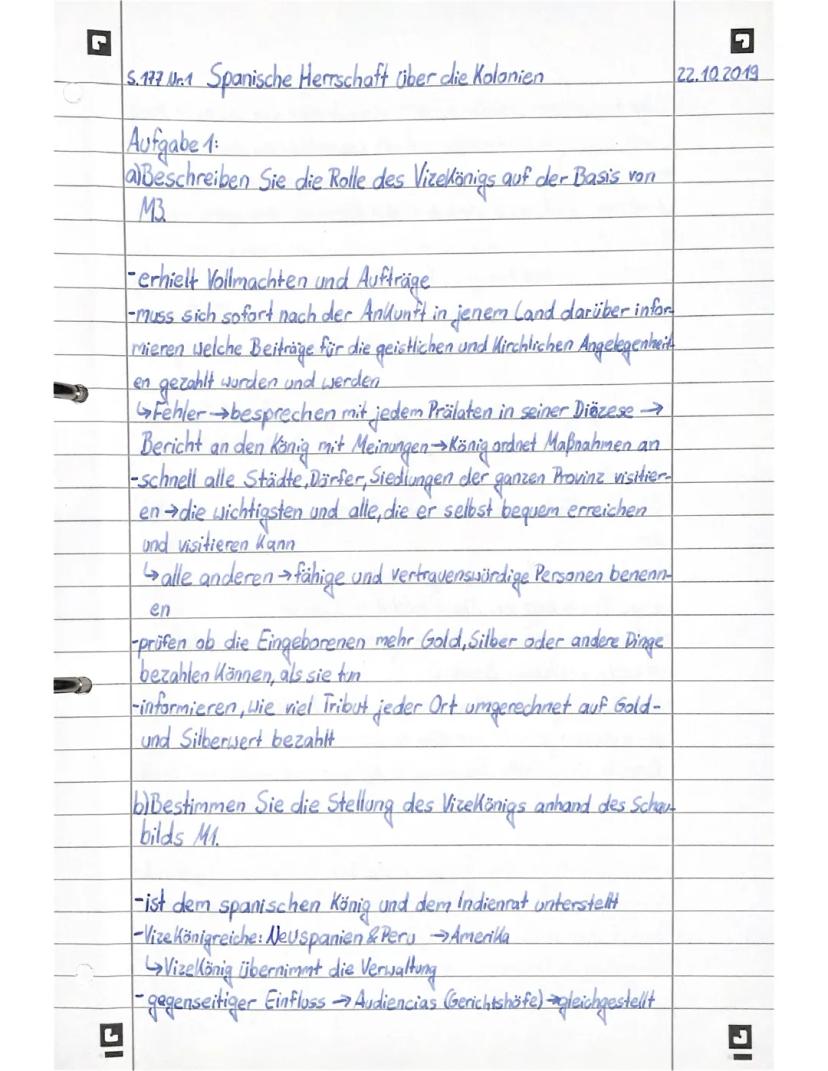 S.177 Nr.1 Spanische Herrschaft über die Kolonien 22.10.2019
Aufgabe 1:
a) Beschreiben Sie die Rolle des Vizekönigs auf der Basis von
M3.
-erhielt Vollmachten und Aufträge
-muss sich sofort nach der Ankunft in jenem Land darüber infor-
mieren welche Beiträge für die geistlichen und kirchlichen Angelegenheit
en gezahlt wurden und werden
↳Fehler→besprechen mit jedem Prälaten in seiner Diözese→
Bericht an den König mit Meinungen→König ordnet Maßnahmen an
-schnell alle Städte, Dörfer, Siedlungen der ganzen Provinz visitier-
en→die wichtigsten und alle, die er selbst bequem erreichen
und visitieren kann
↳alle anderen→fähige und vertrauenswürdige Personen benenn-
en
-prüfen ob die Eingeborenen mehr Gold, Silber oder andere Dinge
bezahlen können, als sie tun
-informieren, wie viel Tribut jeder Ort umgerechnet auf Gold-
und Silberwert bezahlt
b) Bestimmen Sie die Stellung des Vizekönigs anhand des Schau-
bilds M1.
-ist dem spanischen König und dem Indienrat unterstellt
-Vizekönigreiche: Neuspanien & Peru →Amerika
↳Vizekönig übernimmt die Verwaltung
-gegenseitiger Einfluss→Audiencias (Gerichtshöfe)→gleichgestellt